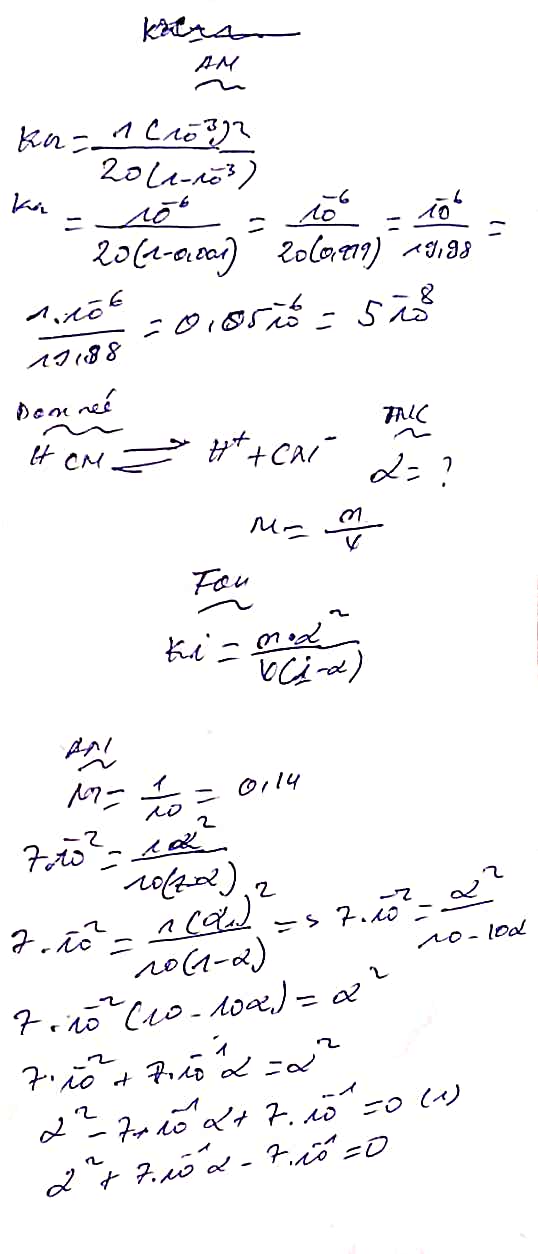 AN
Ka = 1(10⁻³)² / 20(1-10⁻³)
Ka = 10⁻⁶ / 20(1-0,001) = 10⁻⁶ / 20(0,999) = 10⁻⁶ / 19,98 =
1.10⁻⁶ / 19,98 = 0,05 10⁻⁶ = 5 10⁻⁸
Donneé
HCN ⇌ H⁺ + CN⁻
α = ?
M = n / V
Fou
Ki = n·α² / V(1-α)
AN
M = 1 / 10 = 0,1M
7.10⁻² = 1α² / 10(1-α)
7.10⁻² = 1(α)² / 10(1-α) => 7.10⁻² = α² / 10-10α
7.10⁻²(10-10α) = α²
7.10⁻² + 7.10⁻¹α = α²
α² - 7.10⁻¹α + 7.10⁻¹ = 0 (1)
α² + 7.10⁻¹α - 7.10⁻¹ = 0